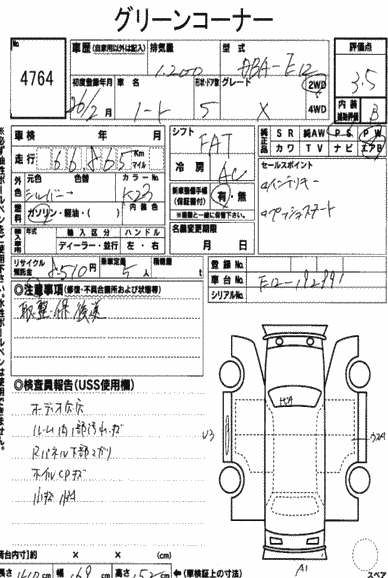 グリーンコーナー
No.
4764
車歴 (自家用以外は記入)
排気量
型式
1.200
DBA-E12
2WD
4WD
評価点
3.5
初度登録年月
車名
形状・ドア数
グレード
26/2月
ノート
5
X
内装
補助評価
B
車検 年 月
シフト
FAT
純正品
SR 純AW PS PW
カワ TV ナビ エアB
走行
66865
Km
マイル
冷房
AC
セールスポイント
インテリキー
プッシュスタート
外色
元色
色替
カラーNo.
シルバー→
K23
燃料
ガソリン・軽油・( )
内装色
新車整備手帳
(保証書付)
有・無
※書類と一緒に保管下さい。
輸入車用
年式
輸入区分
ハンドル
ディーラー・並行
左・右
名義変更期限
月 日
リサイクル
預託金
8510円
乗車定員
5人
積載量
t
登録No.
車台No.
E12-192891
シリアルNo.
◎注意事項(修復・不具合箇所および状態等)
取・整・保 後送
◎検査員報告(USS使用欄)
ルーム内
小キズ
U3
A1
荷台内寸)約 × × (cm)
長さ 410 cm 幅 169 cm 高さ 152 cm ←(車検証上の寸法)
スペア